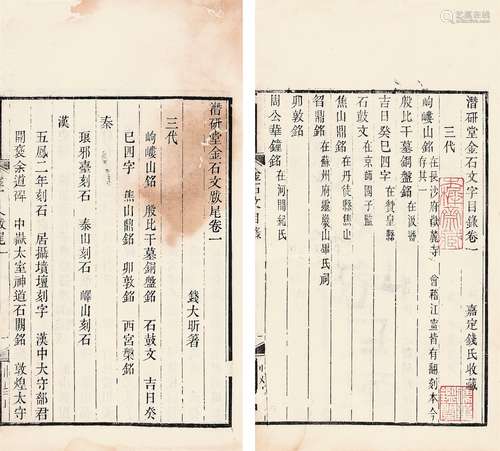 潛研堂金石文字目錄卷一
嘉定錢氏收藏
三代
岣嶁山銘 在長沙府嶽麓寺 會稽江寧皆有翻刻本今存其一
殷比干墓銅盤銘 在汲縣
吉日癸巳四字 在贊皇縣
石鼓文 在京師國子監
焦山鼎銘 在丹徒縣焦山
㫚鼎銘 在蘇州府靈巖山畢氏祠
卯敦銘
周公華鐘銘 在河間紀氏
金石文目錄
潛研堂金石文跋尾卷一
錢大昕著
三代
岣嶁山銘 殷比干墓銅盤銘 石鼓文 吉日癸
巳四字 焦山鼎銘 卯敦銘 西宮槃銘
秦
琅邪臺刻石 泰山刻石 嶧山刻石
漢
五鳳二年刻石 居攝墳壇刻字 漢中太守鄐君
開褒余道碑 中嶽太室神道石闕銘 敦煌太守